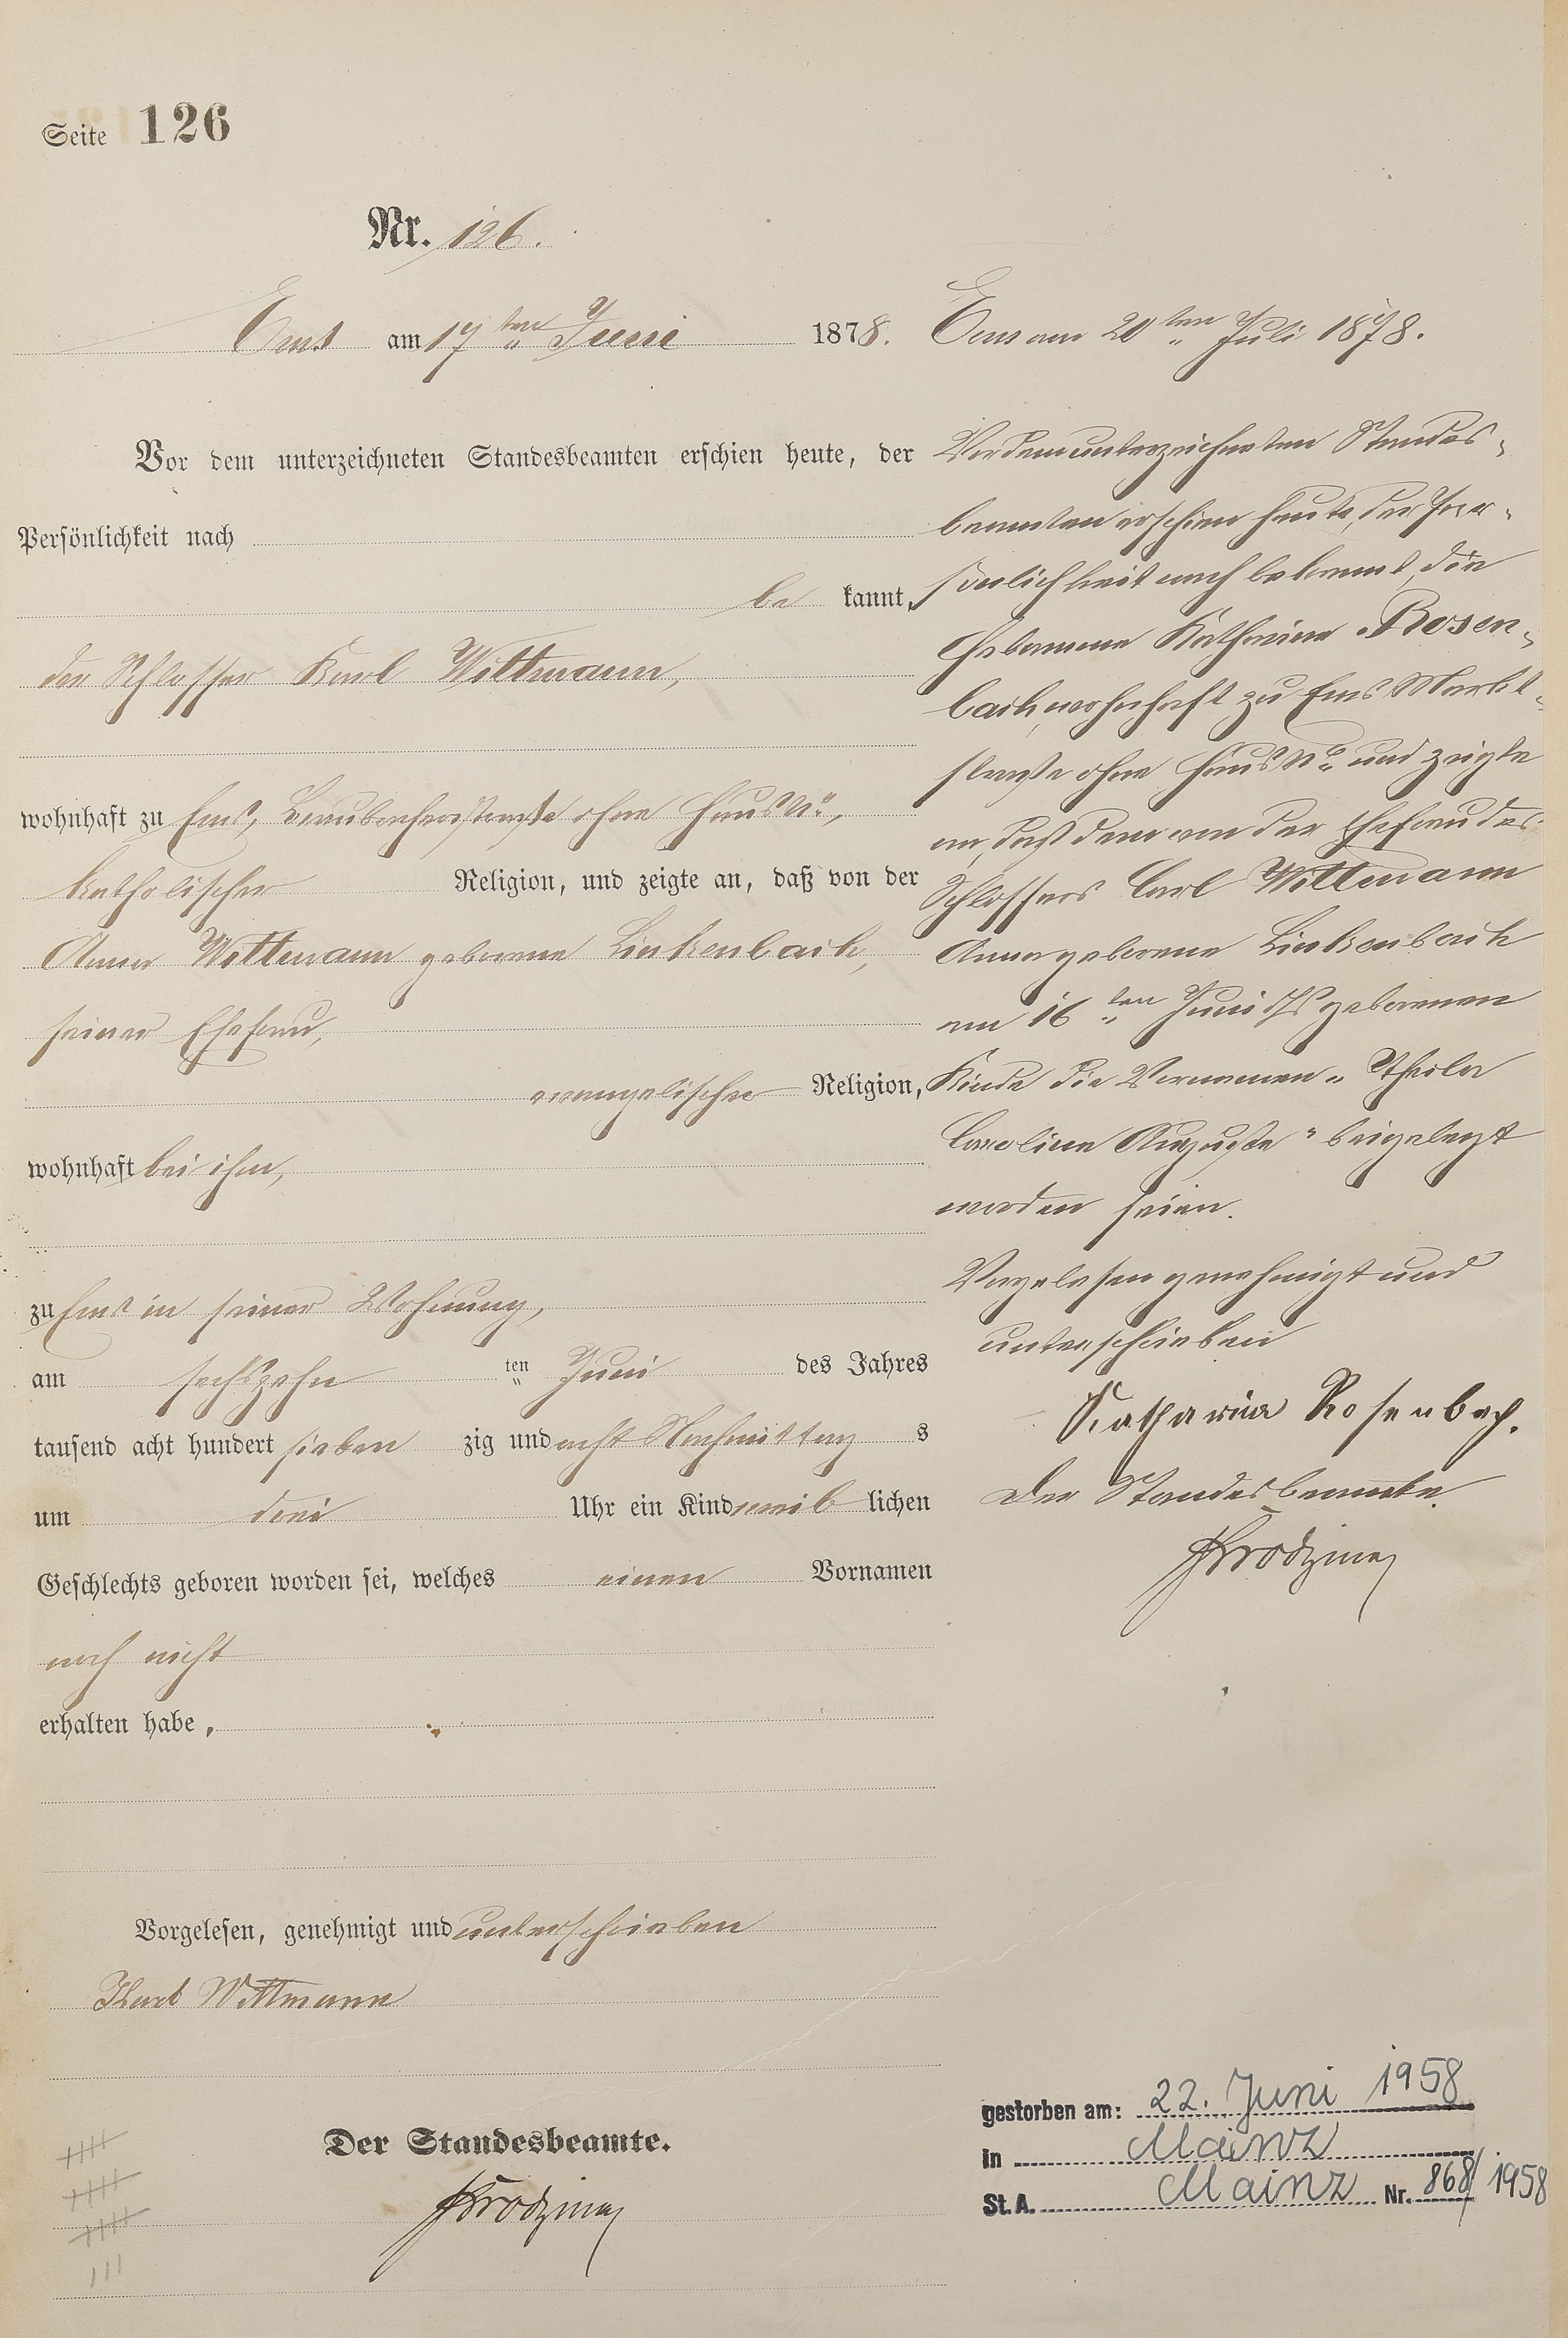 Seite 126
Nr. 126.
Ems am 17ten Juni 1878.
Vor dem unterzeichneten Standesbeamten erschien heute, der
Persönlichkeit nach
be kannt,
der Schlosser Karl Wittmann,
wohnhaft zu Ems, Braubacherstraße ohne Haus No,
katholischer Religion, und zeigte an, daß von der
Anna Wittmann geborene Linkenbach,
seiner Ehefrau,
evangelischer Religion,
wohnhaft bei ihm,
zu Ems in seiner Wohnung,
am sechszehn ten Juni des Jahres
tausend acht hundert sieben zig und acht Nachmittag s
um drei Uhr ein Kind weib lichen
Geschlechts geboren worden sei, welches einen Vornamen
noch nicht
erhalten habe.
Vorgelesen, genehmigt und unterschrieben
Karl Wittmann
Der Standesbeamte.
Ems am 20ten Juli 1878.
Vor dem unterzeichneten Standes-
beamten erschien heute, der Per-
sönlichkeit nach bekannt, die
Hebamme Katharina Rosen-
bach, wohnhaft zu Ems Markt-
straße ohne Haus No und zeigte
an, daß dem von der Ehefrau des
Schlossers Carl Wittmann
Anna geborene Linkenbach
am 16ten Juni geborenen
Kinde die Vornamen "
Caroline Auguste" beigelegt
worden seien.
Vorgelesen genehmigt und
unterschrieben
Katharina Rosenbach.
Der Standesbeamte.
gestorben am: 22. Juni 1958
in Mainz
St. A. Mainz Nr. 868/1958